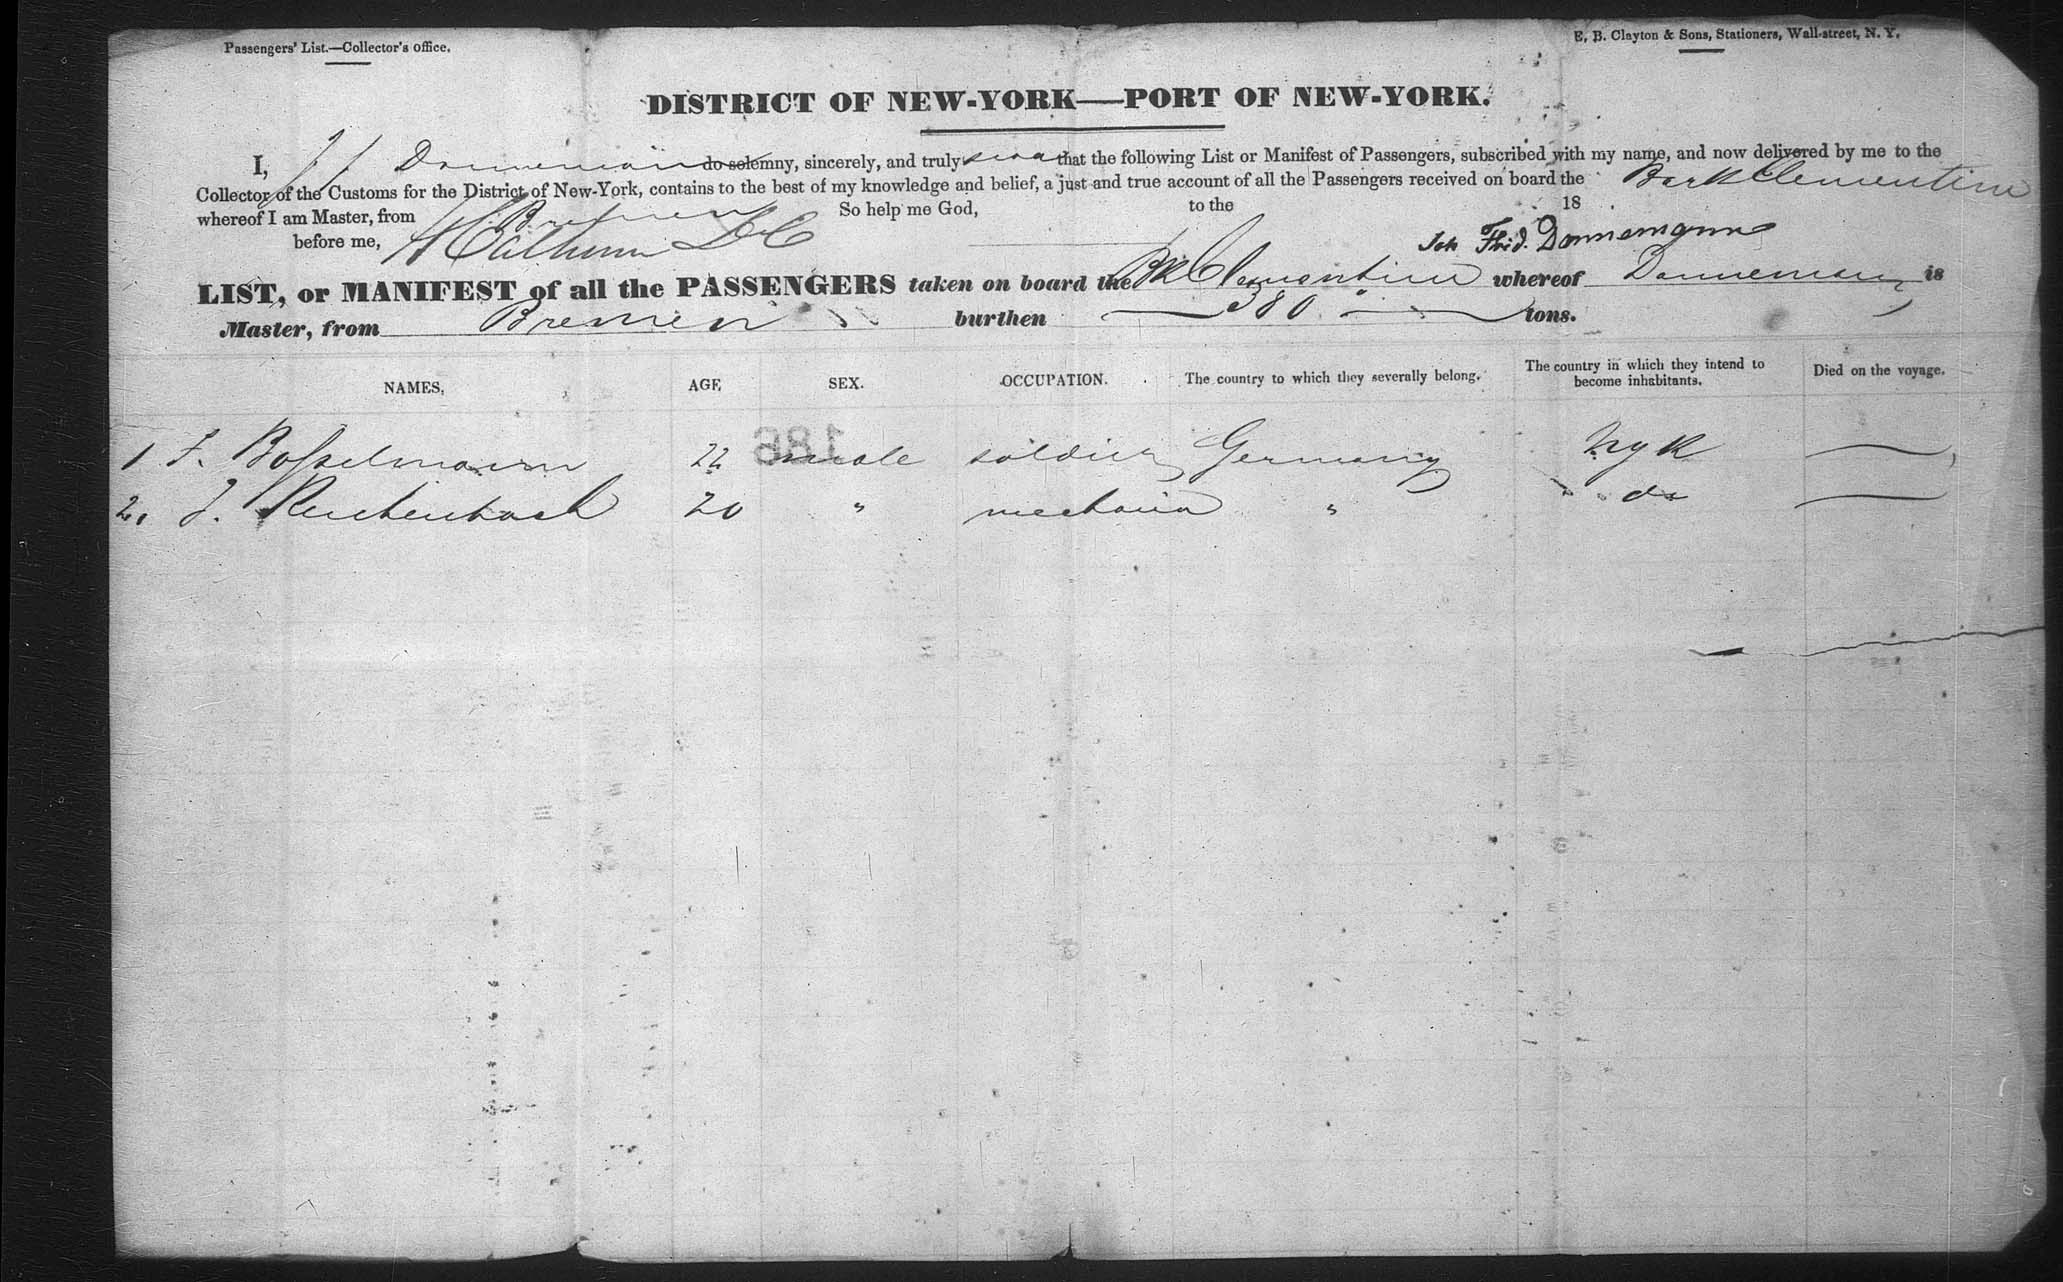 Passengers' List.—Collector's office.
E. B. Clayton & Sons, Stationers, Wall-street, N. Y.
DISTRICT OF NEW-YORK—PORT OF NEW-YORK.
I, J F Dannemann do solemny, sincerely, and truly swear that the following List or Manifest of Passengers, subscribed with my name, and now delivered by me to the
Collector of the Customs for the District of New-York, contains to the best of my knowledge and belief, a just and true account of all the Passengers received on board the Bark Clementine
whereof I am Master, from Bremen So help me God, to the 18
before me, Calhoun DC Joh Frid. Dannemann
LIST, or MANIFEST of all the PASSENGERS taken on board the Bk Clementine whereof Dannemann is
Master, from Bremen burthen 380 tons.
NAMES, AGE SEX. OCCUPATION. The country to which they severally belong. The country in which they intend to become inhabitants. Died on the voyage.
186
1 F. Bosselmann 22 male soldier Germany N Y K —
2. J. Reichenbach 20 " mechanic " do —